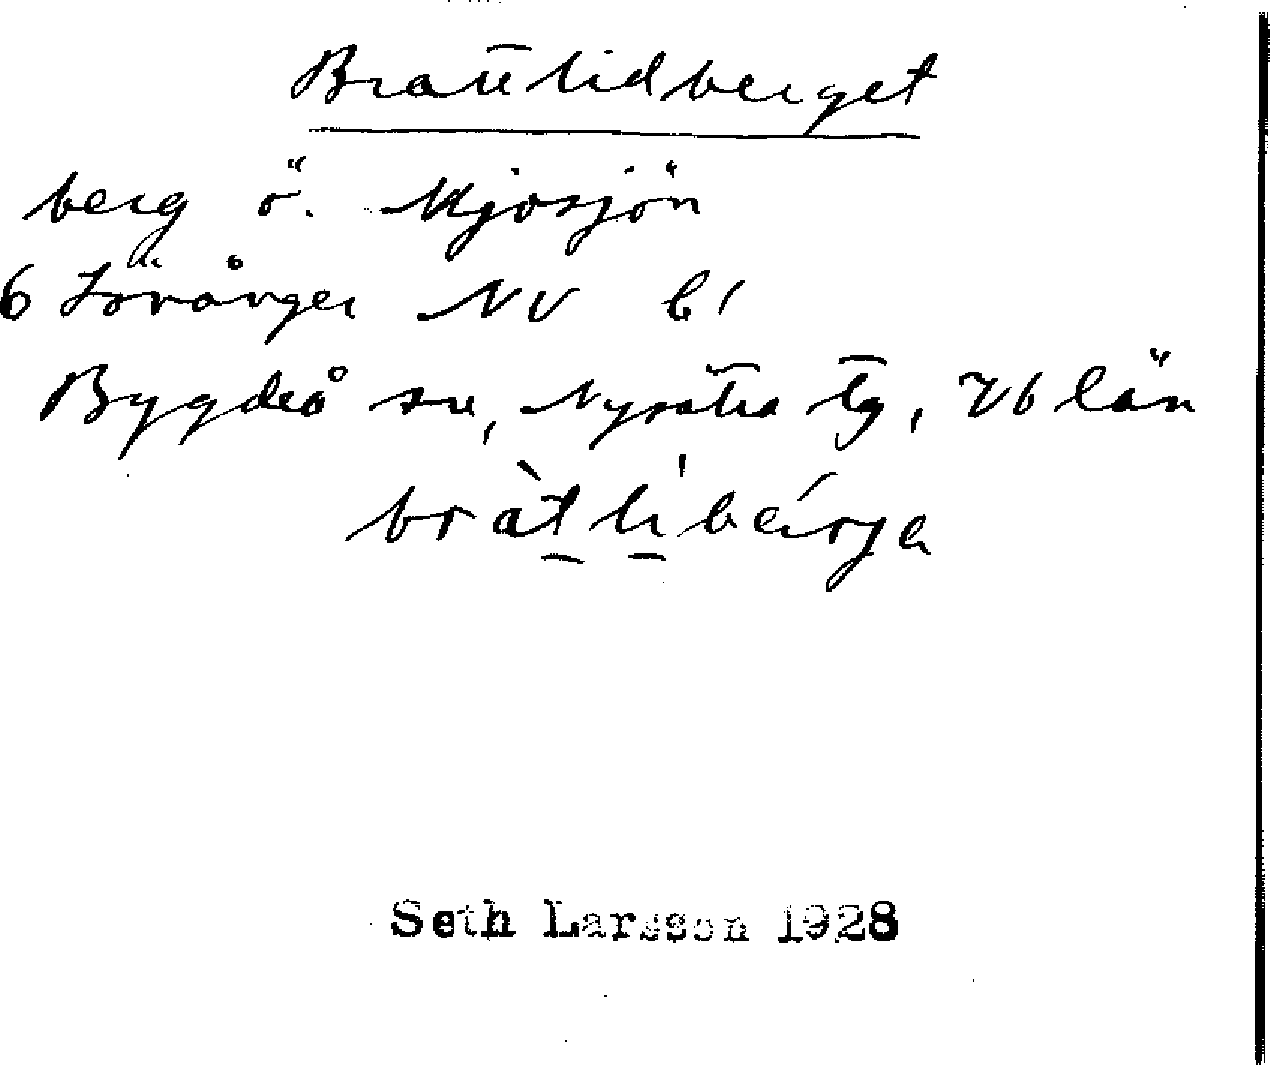 Brattlidberget
berg ö. Mjösjön
6 Lövånger NV b1
Bygdeå sn, Nysätra tg, Vb län
bràtlibérja
Seth Larsson 1928